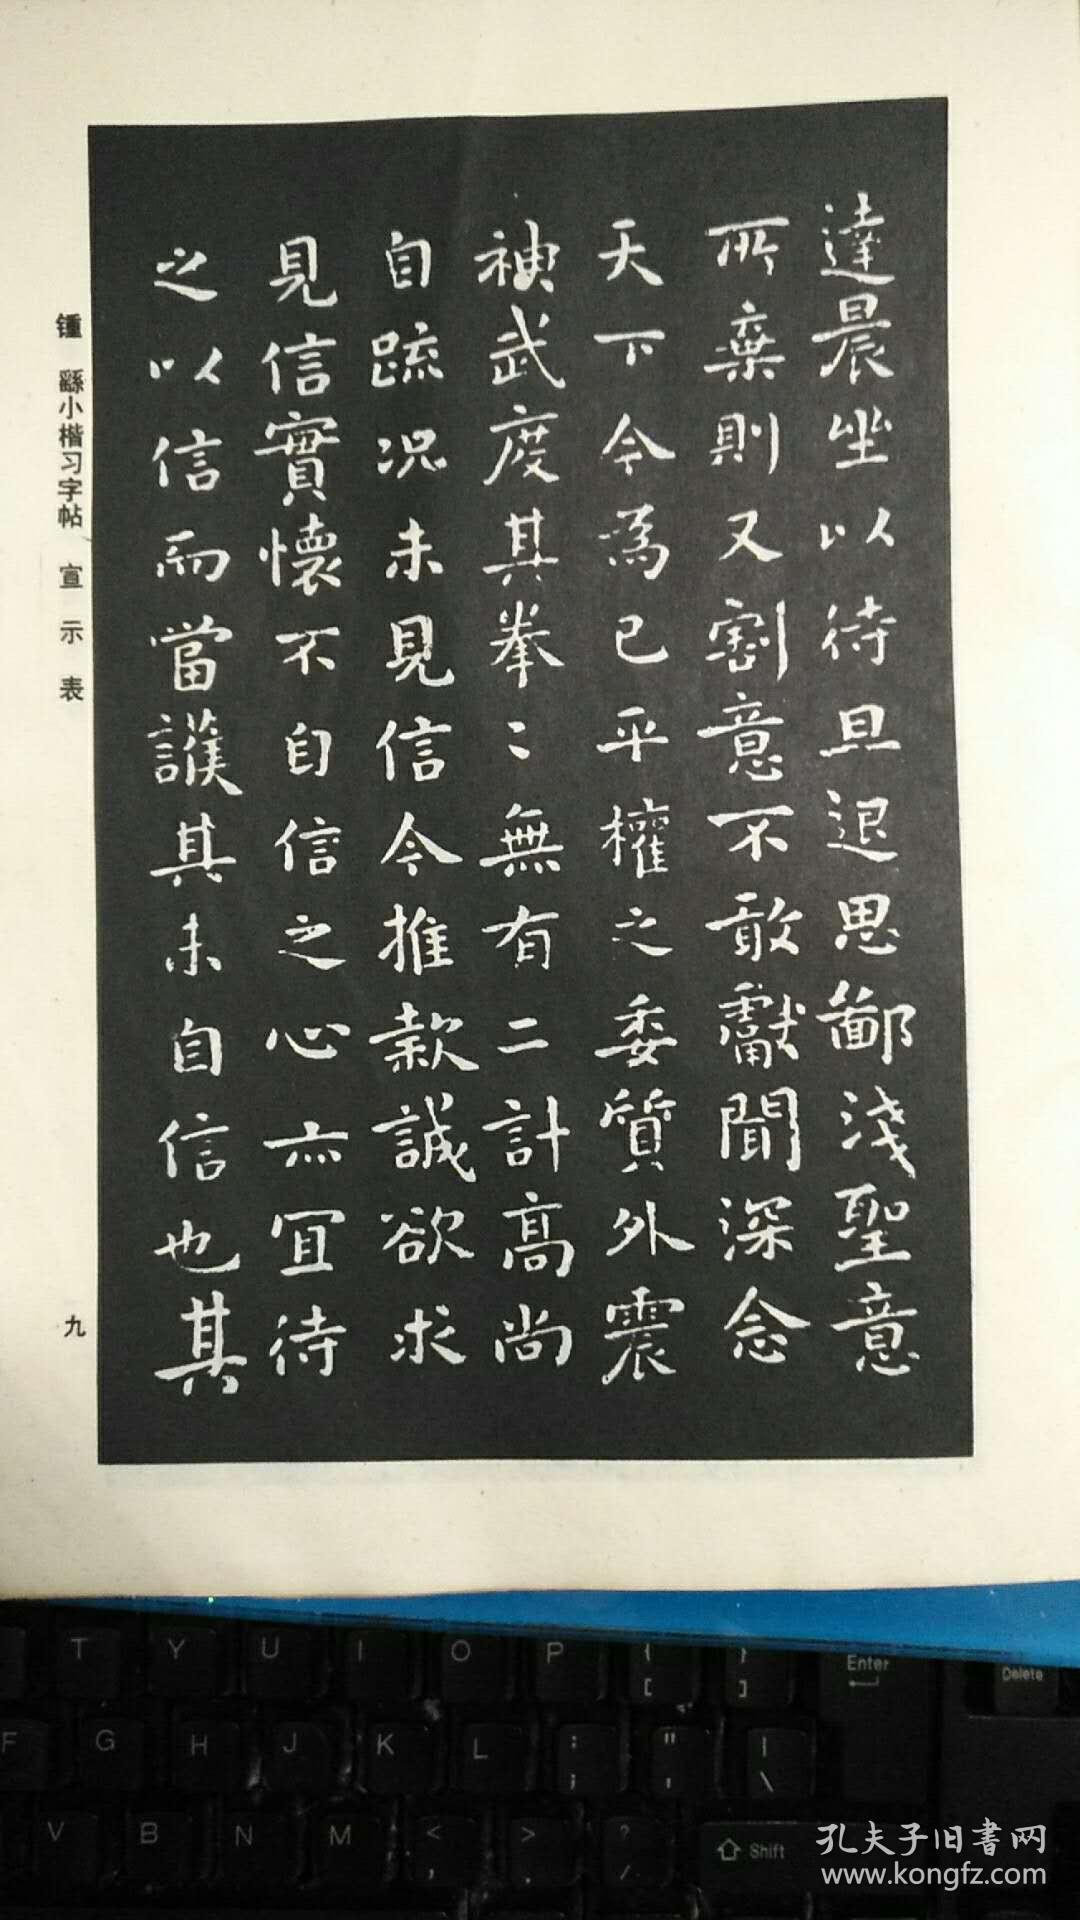 達晨坐以待旦退思鄙淺聖意
所棄則又割意不敢獻聞深念
天下今為已平權之委質外震
神武度其拳〻無有二計高尚
自疏况未見信今推款誠欲求
見信實懷不自信之心亦宜待
之以信而當護其未自信也其
锺繇小楷习字帖 宣示表
九
T Y U I O P { [ } ] Enter Delete
F G H J K L : ; " ' | \
V B N M < , > . ? / Shift
孔夫子旧書网
www.kongfz.com